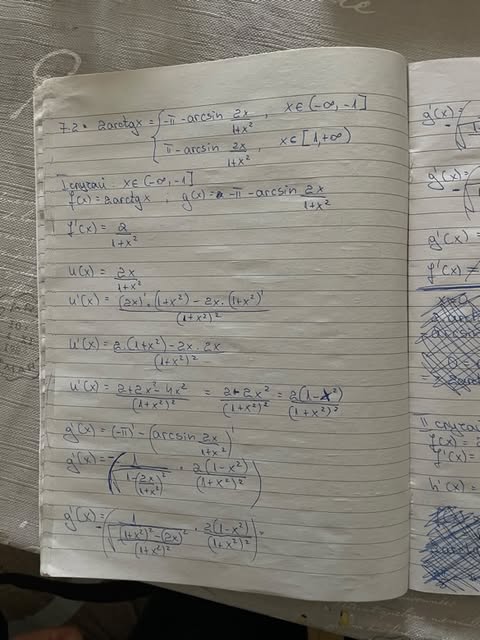 7.2. 2arctgx = { -π - arcsin 2x/(1+x²), x∈(-∞, -1]
π - arcsin 2x/(1+x²), x∈[1, +∞)
I случай: x∈(-∞, -1]
f(x) = 2arctgx ; g(x) = -π - arcsin 2x/(1+x²)
f'(x) = 2/(1+x²)
u(x) = 2x/(1+x²)
u'(x) = ((2x)'·(1+x²) - 2x·(1+x²)')/(1+x²)²
u'(x) = (2·(1+x²) - 2x·2x)/(1+x²)²
u'(x) = (2+2x²-4x²)/(1+x²)² = (2-2x²)/(1+x²)² = 2(1-x²)/(1+x²)²
g'(x) = (-π)' - (arcsin 2x/(1+x²))'
g'(x) = -(1/√(1-(2x/(1+x²))²) · 2(1-x²)/(1+x²)²)
g'(x) = -(1/√(((1+x²)²-(2x)²)/(1+x²)²) · 2(1-x²)/(1+x²)²) =
g'(x) =
g'(x) =
g'(x) =
f'(x) ≠
x=0
II случай
f(x) =
f'(x) =
h'(x) =